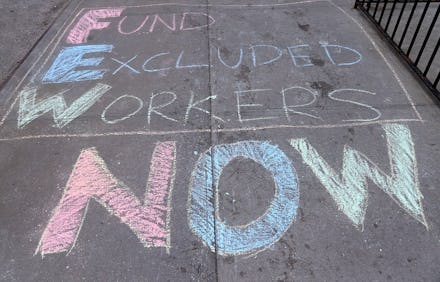 FUND
EXCLUDED
WORKERS
NOW